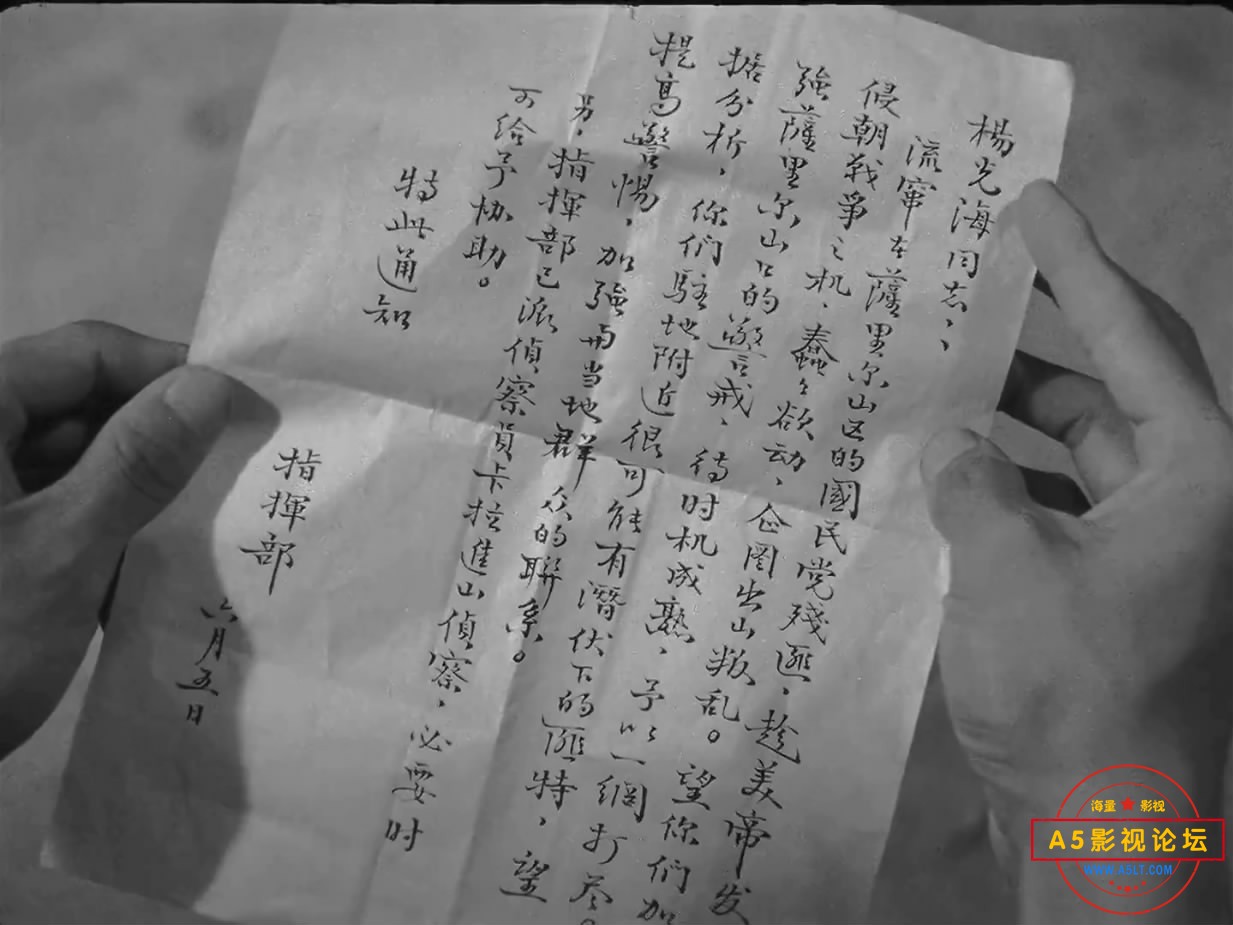 楊光海同志：
流窜在薩里尔山区的國民党殘匪、趁美帝发
侵朝战争之机、蠢々欲动、企图出山叛乱。望你们加
強薩里尔山口的警戒、待时机成熟，予以一網打尽。
据分析，你们駐地附近很可能有潛伏下的匪特，望
提高警惕，加強与当地群众的聯系。
另，指揮部已派偵察員卡拉進山偵察，必要时
可给予协助。
特此通知
指揮部
六月五日
海量★影视
A5影视论坛
WWW.A5LT.COM